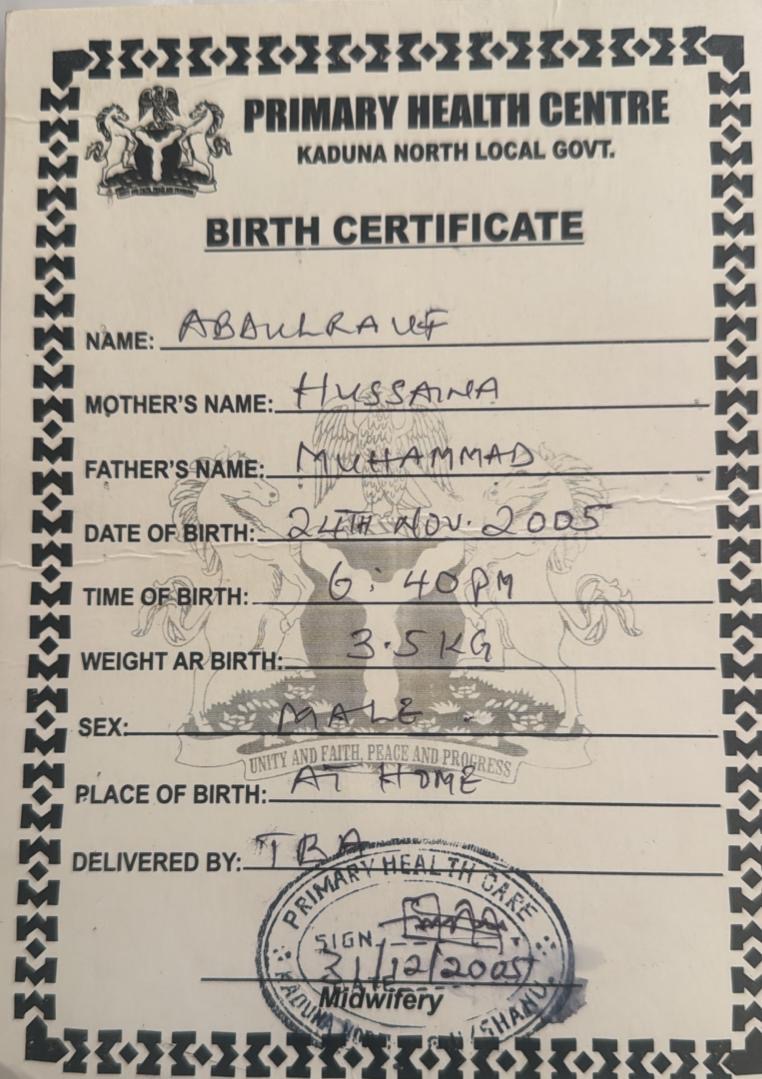 PRIMARY HEALTH CENTRE
KADUNA NORTH LOCAL GOVT.
BIRTH CERTIFICATE
NAME: ABDULRAUF
MOTHER'S NAME: HUSSAINA
FATHER'S NAME: MUHAMMAD
DATE OF BIRTH: 24TH NOV. 2005
TIME OF BIRTH: 6:40PM
WEIGHT AR BIRTH: 3.5KG
SEX: MALE
UNITY AND FAITH, PEACE AND PROGRESS
PLACE OF BIRTH: AT HOME
DELIVERED BY: TBA
PRIMARY HEALTH CARE
SIGN.
31/12/2005
DATE
Midwifery
KADUNA
SHANU